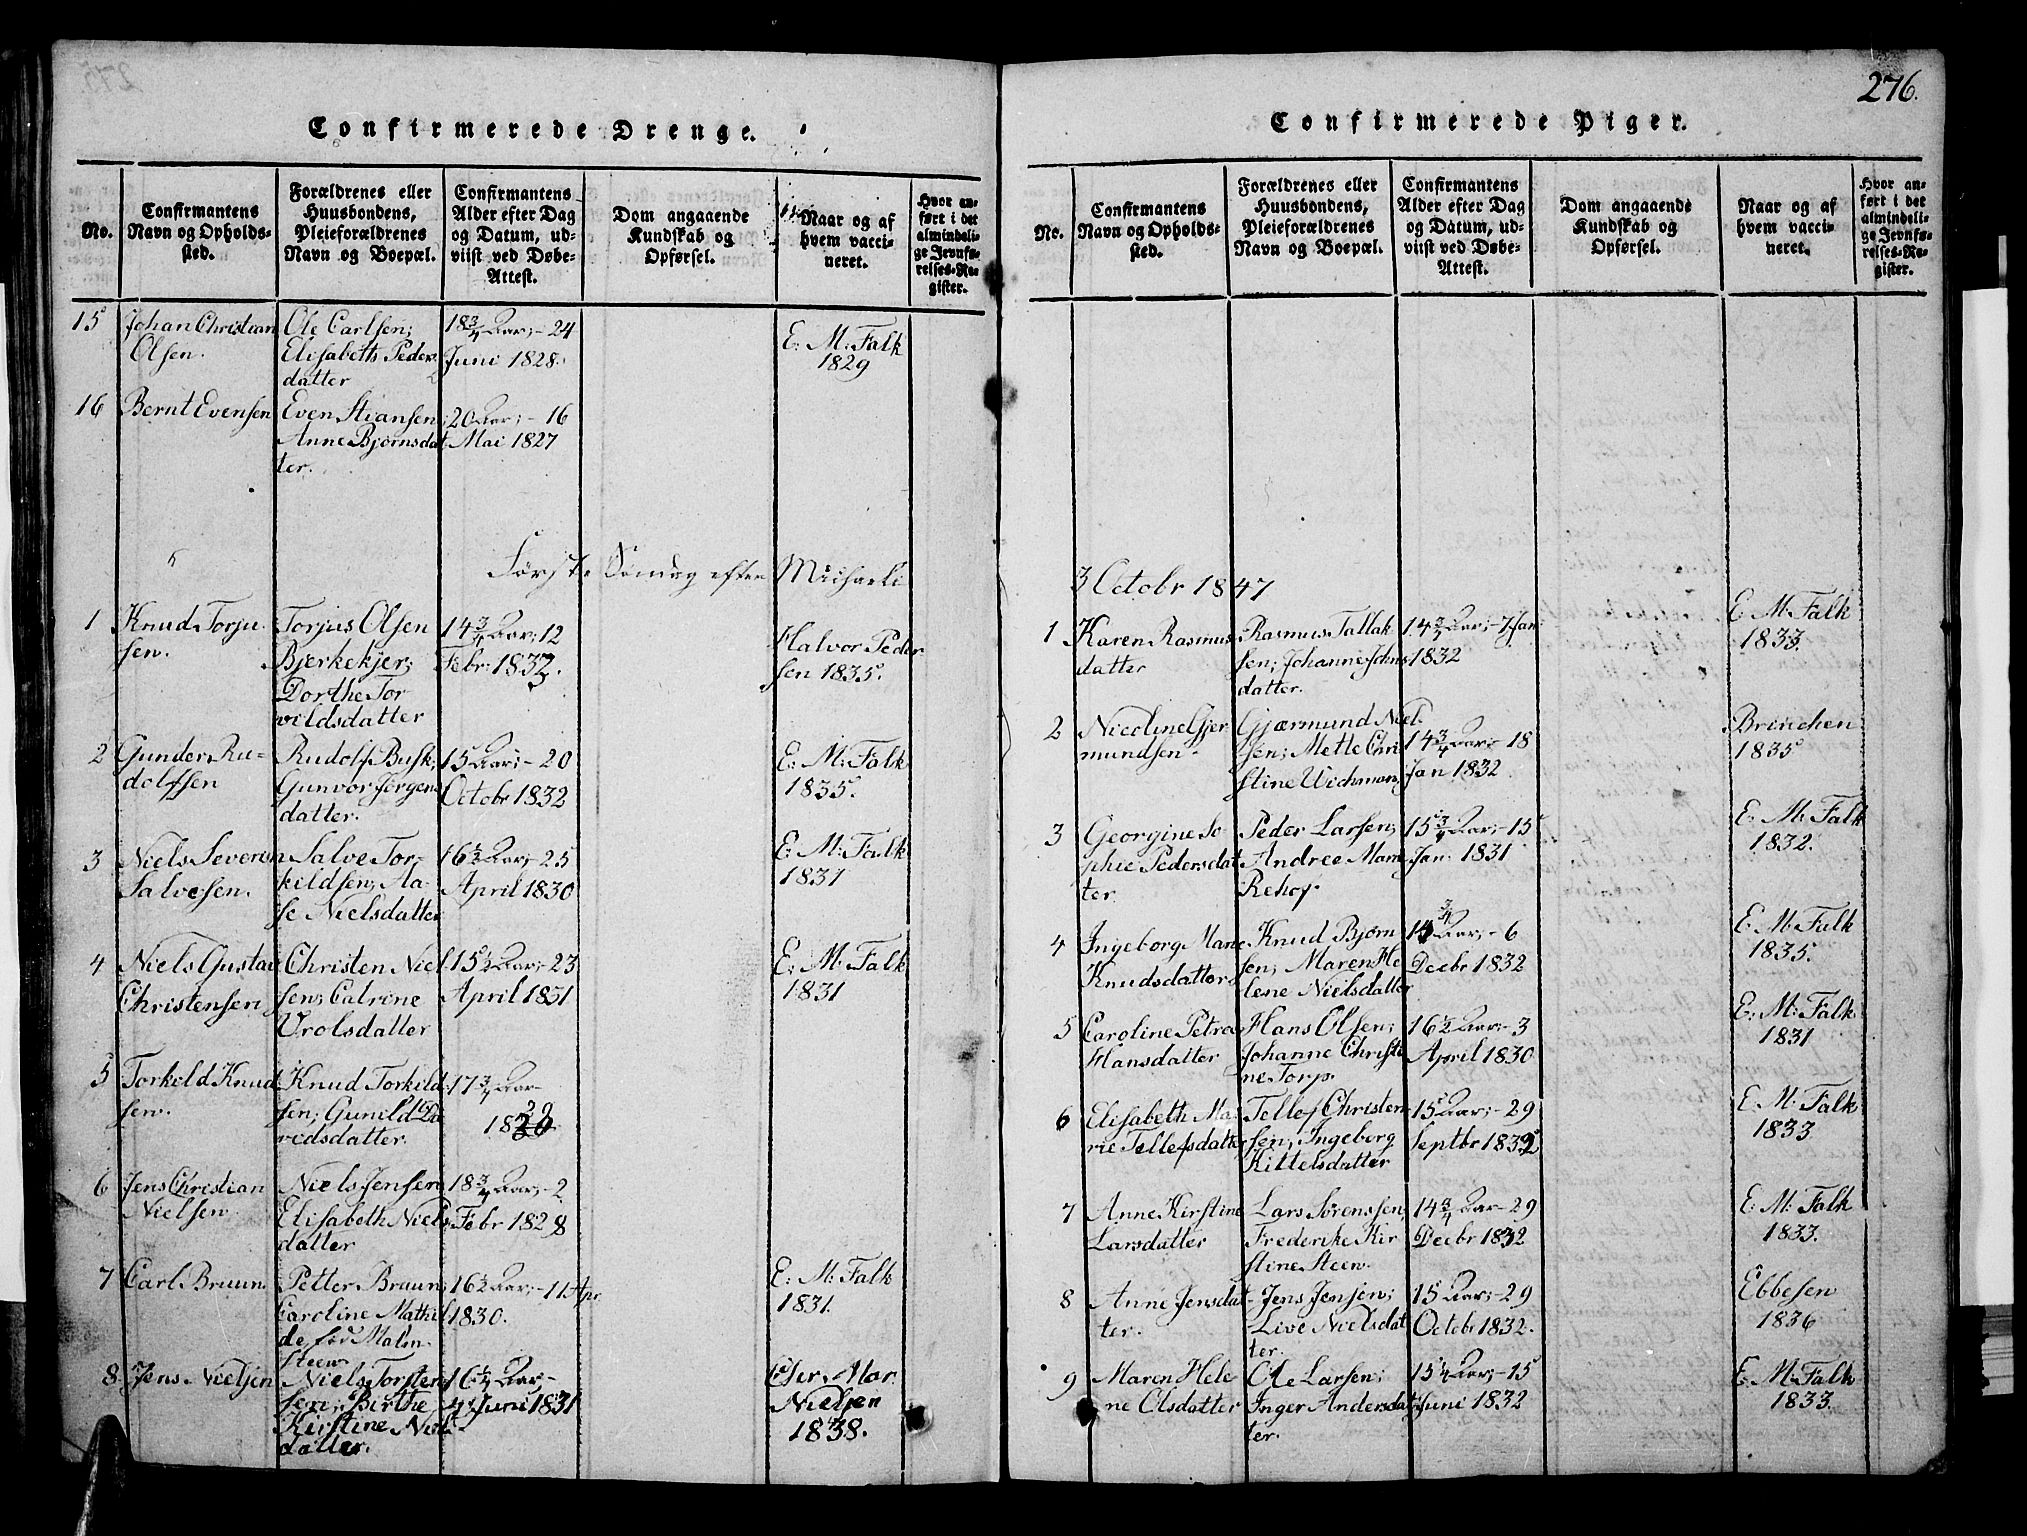 276.
Confirmerede Drenge.
No.
Confirmantens
Navn og Opholds-
sted.
Forældrenes eller
Huusbondens,
Pleieforældrenes
Navn og Boepæl.
Confirmantens
Alder efter Dag
og Datum, ud-
viist ved Døbe-
Attest.
Dom angaaende
Kundskab og
Opførsel.
Naar og af
hvem vacci-
neret.
Hvor an-
ført i det
almindeli-
ge Jevnfø-
relses-Re-
gister.
15
Johan Christian
Olsen.
Ole Carlsen;
Elisabeth Peders
datter
18 3/4 Aar; - 24
Juni 1828.
E: M: Falk
1829
16
Bernt Evensen
Even Stiansen;
Anne Bjørnsdat
ter.
20 Aar; - 16
Mai 1827
Første Søndag efter Michaeli
1
Knud Torju
sen.
Torjus Olsen
Bjerkekjer;
Dorthe Tor
vildsdatter
14 3/4 Aar; 12
Febr: 1833.
Halvor Peder
sen 1835.
2
Gunder Ru-
dolfsen
Rudolf Busk;
Gunvor Jørgens
datter.
15 Aar; - 20
Octobr 1832
E: M: Falk
1835.
3
Niels Severin
Salvesen.
Salve Tor-
kildsen; Aa-
se Nielsdatter
16 1/2 Aar; - 25
April 1830
E: M: Falk
1831
4
Niels Gustav
Christensen
Christen Niel
sen; Catrine
Urolsdatter
15 1/2 Aar; - 23
April 1831
E: M: Falk
1831
5
Torkeld Knud
sen.
Knud Torkild
sen; Gunild Da
vidsdatter.
17 3/4 Aar -
1829
6
Jens Christian
Nielsen
Niels Jensen
Elisabeth Niels
datter
18 3/4 Aar; - 2
Febr 1828
7
Carl Bruun.
Petter Bruun;
Caroline Mathil
de, fød Malm
steen
16 1/2 Aar; - 11 Apr.
1830.
E: M: Falk
1831.
8
Jens Nielsen
Niels Torsten
sen; Birthe
Kirstine Niels
datter.
16 1/4 Aar -
4 Juni 1831
Chr. Mar.
Nielsen
1838.
Confirmerede Piger.
No.
Confirmantens
Navn og Opholds-
sted.
Forældrenes eller
Huusbondens,
Pleieforældrenes
Navn og Boepæl.
Confirmantens
Alder efter Dag
og Datum, ud-
viist ved Døbe-
Attest.
Dom angaaende
Kundskab og
Opførsel.
Naar og af
hvem vacci-
neret.
Hvor an-
ført i det
almindeli-
ge Jevnfø-
relses-Re-
gister.
3 Octobr 1847
1
Karen Rasmus
datter
Rasmus Tallak
sen; Johanne Johns
datter.
14 3/4 Aar; - 7 Jan
1832
E: M: Falk
1833.
2
Nicoline Gjer
mundsen
Gjærmund Niel
sen; Mette Chri
stine Wichmann
14 3/4 Aar; - 18
Jan 1832
Brinchen
1835
3
Georgine So
phie Pedersdat
ter.
Peder Larsen;
Andree Marie
Rehoy
15 3/4 Aar; - 15
Jan. 1831
E: M: Falk
1832.
4
Ingeborg Marie
Knudsdatter
Knud Bjørn
sen; Maren He
lene Nielsdatter
14 3/4 Aar; - 6
Decbr 1832
E: M: Falk
1835.
5
Caroline Petra
Hansdatter
Hans Olsen;
Johanne Christi
ne Torp.
16 1/2 Aar; - 3
April 1830
E: M: Falk
1831
6
Elisabeth Ma
rie Tellefsdatter
Tellef Christen
sen, Ingeborg
Kittelsdatter
15 Aar; - 29
Septbr 1832
E: M: Falk
1833
7
Anne Kirstine
Larsdatter
Lars Sørenssen;
Frederike Kir
stine Steen
14 3/4 Aar - 29
Decbr 1832
E: M: Falk
1833.
8
Anne Jensdat
ter.
Jens Jensen;
Live Nielsdat
ter.
15 Aar; - 29
Octobr 1832.
Ebbesen
1836
9
Maren Hele
ne Olsdatter
Ole Larsen;
Inger Andersdat
ter.
15 1/4 Aar; - 15
Juni 1832
E: M: Falk
1833.